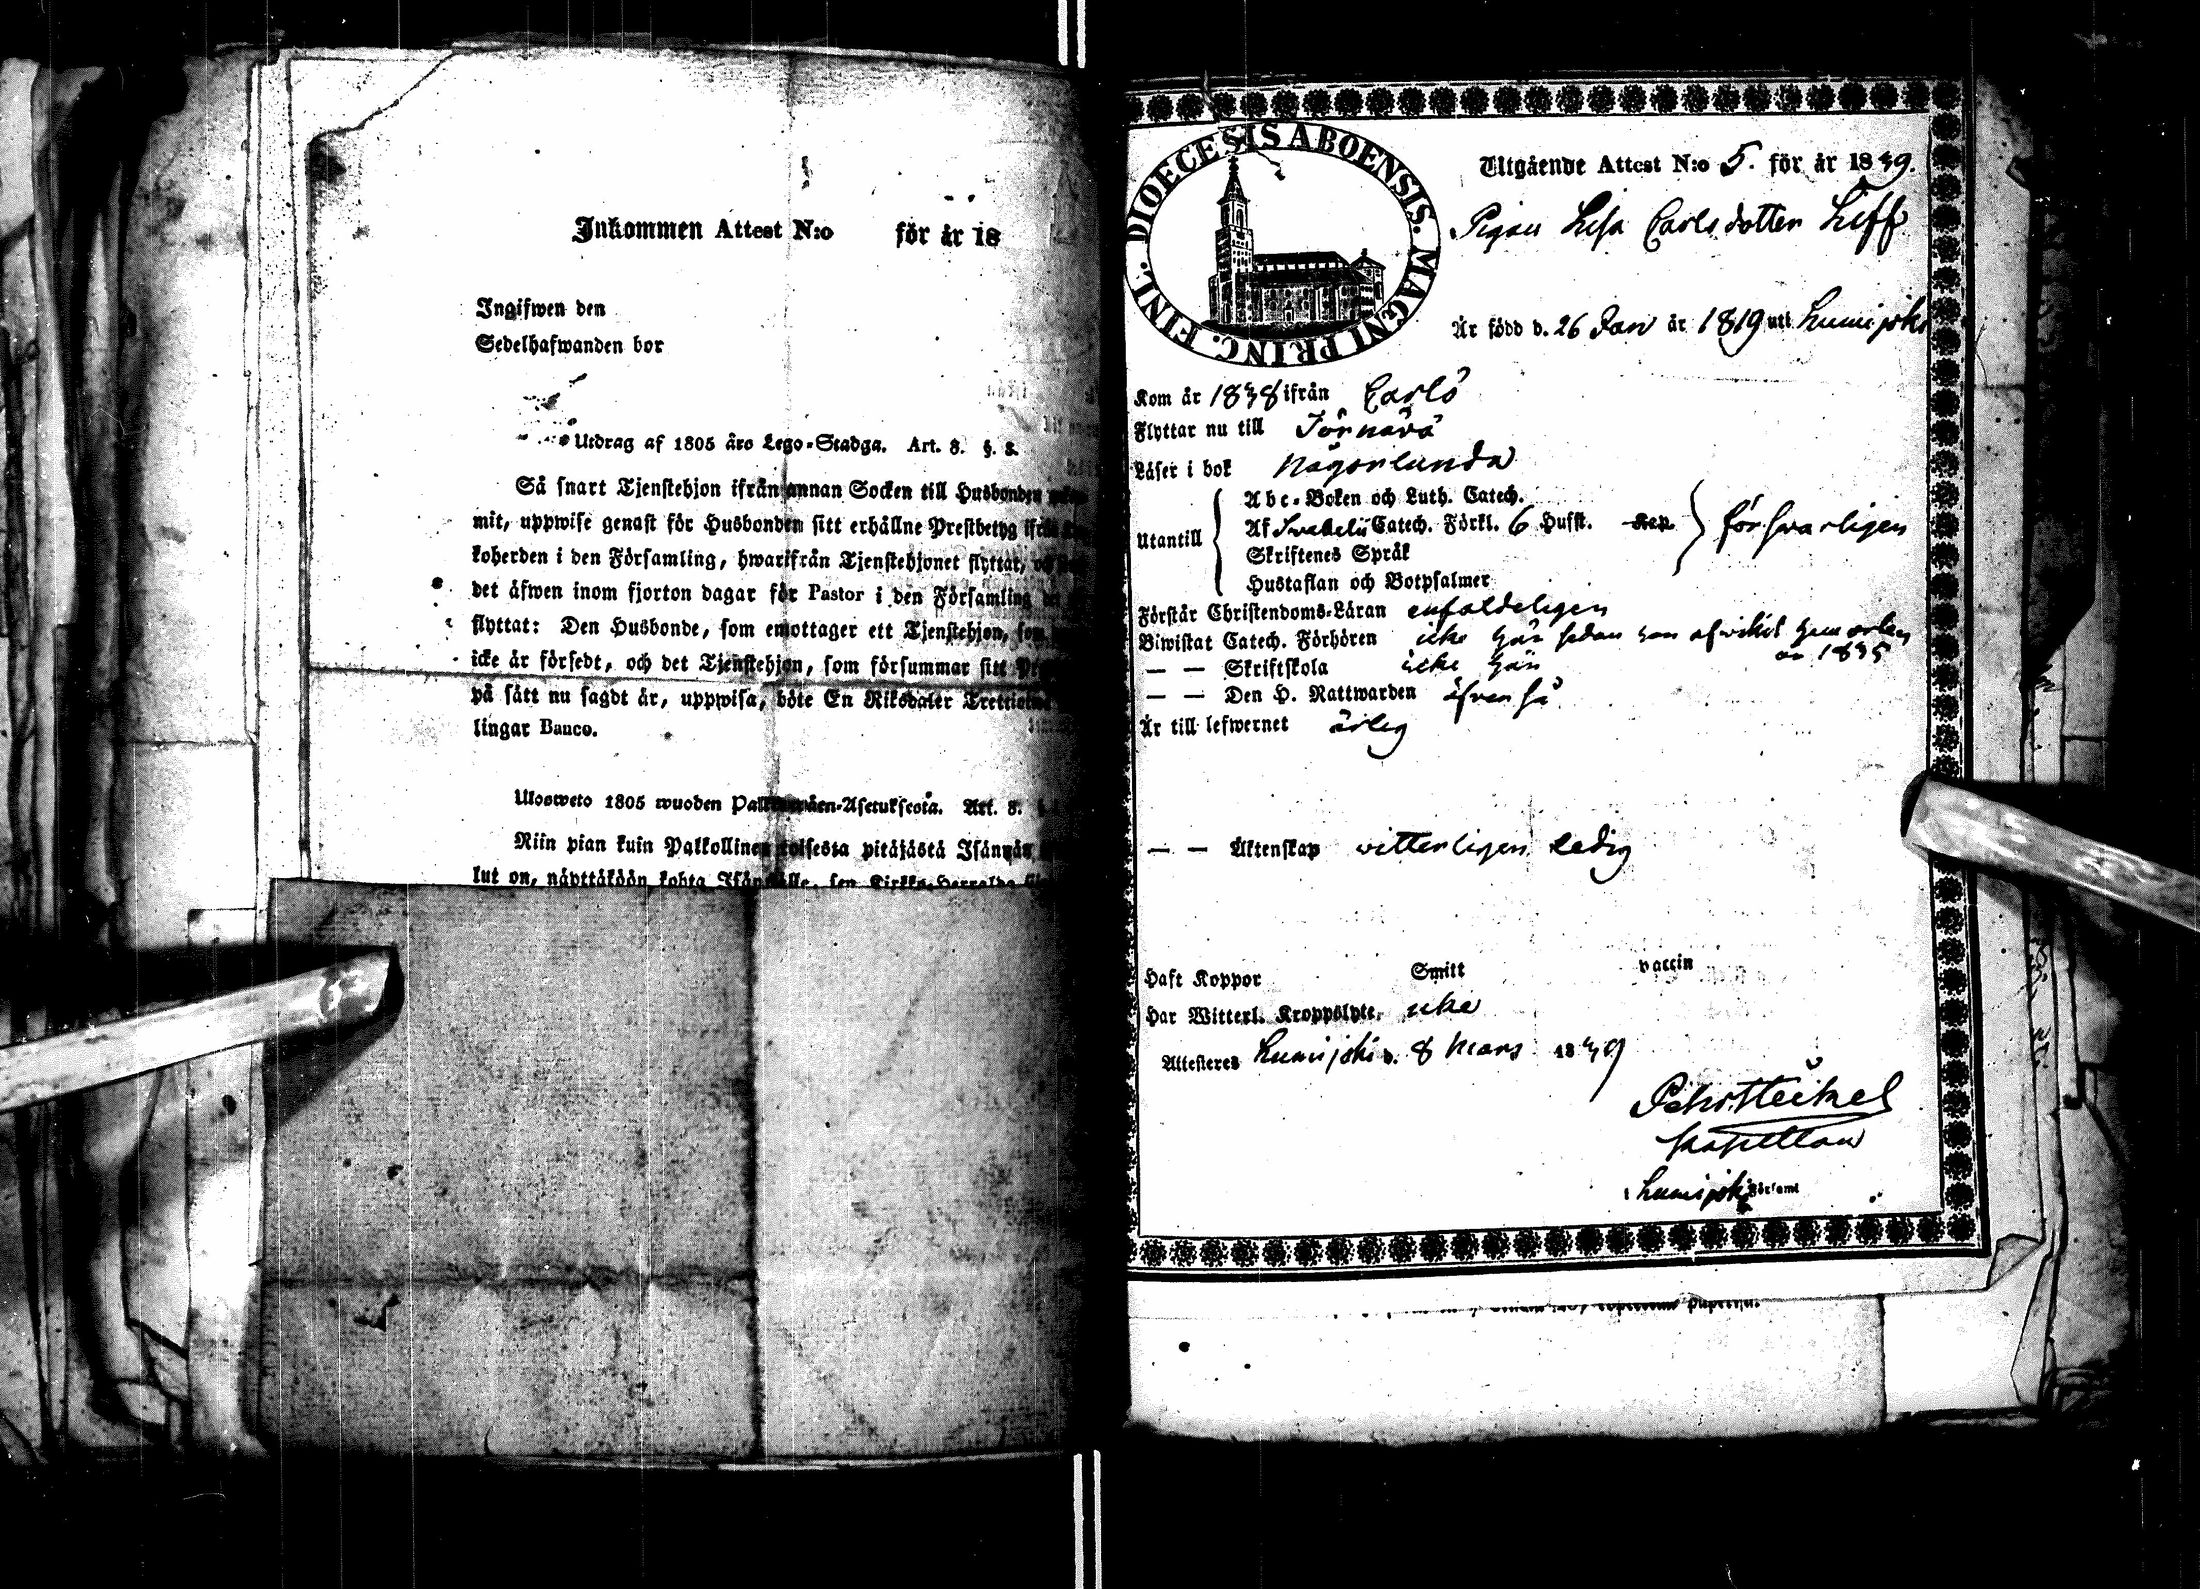 Inkommen Attest N:o för år 18
Ingifwen den
Sedelhafwanden bor
Utdrag af 1805 års Lego-Stadga. Art. 8. §. 8.
Så snart Tjenstehjon ifrån annan Socken till Husbonden
mit, uppwise genast för Husbonden sitt erhållne Prestbetyg ifrån
koherden i den Församling, hwarifrån Tjenstehjonet flyttat,
det äfwen inom fjorton dagar för Pastor i den Församling
flyttat: Den Husbonde, som emottager ett Tjenstehjon, som
icke är försedt, och det Tjenstehjon, som försummar sitt
på sätt nu sagdt är, uppwisa, böte En Riksdaler
lingar Banco.
Ulosweto 1805 wuoden Asetuksesta. Art. 8.
Niin pian kuin Palkollinen toisesta pitäjästä Isännän
lut on, näyttäköön kohta Isännälle, sen Kirkko-Herralda
DIOECESIS ABOENSIS. MAGNI PRINC. FINL.
Utgående Attest N:o 5. för år 1839.
Pigan Lisa Carlsdotter Liff
Är född d. 26 Jan år 1819 uti Lumijoki
Kom år 1838 ifrån Carlö
Flyttar nu till
Läser i bok någorlunda
Utantill
Abc-Boken och Luth. Catech.
Af Swebelii Catech. Förkl. 6 Hufst. Kap.
Skriftenes Språk
Hustaflan och Botpsalmer
försvarligen
Förstår Christendoms-Läran enfaldeligen
Biwistat Catech. Förhören icke här sedan hon afvikit
år 1835
— — Skriftskola icke här
— — Den H. Nattwarden äfven så
Är till lefwernet ärlig
— — Äktenskap vitterligen ledig
Haft Koppor Smitt vaccin
Har Witterl. Kroppslyte, icke
Attesteres Lumijoki d. 8 Mars 1839
Kapellan
i Lumijoki Församl